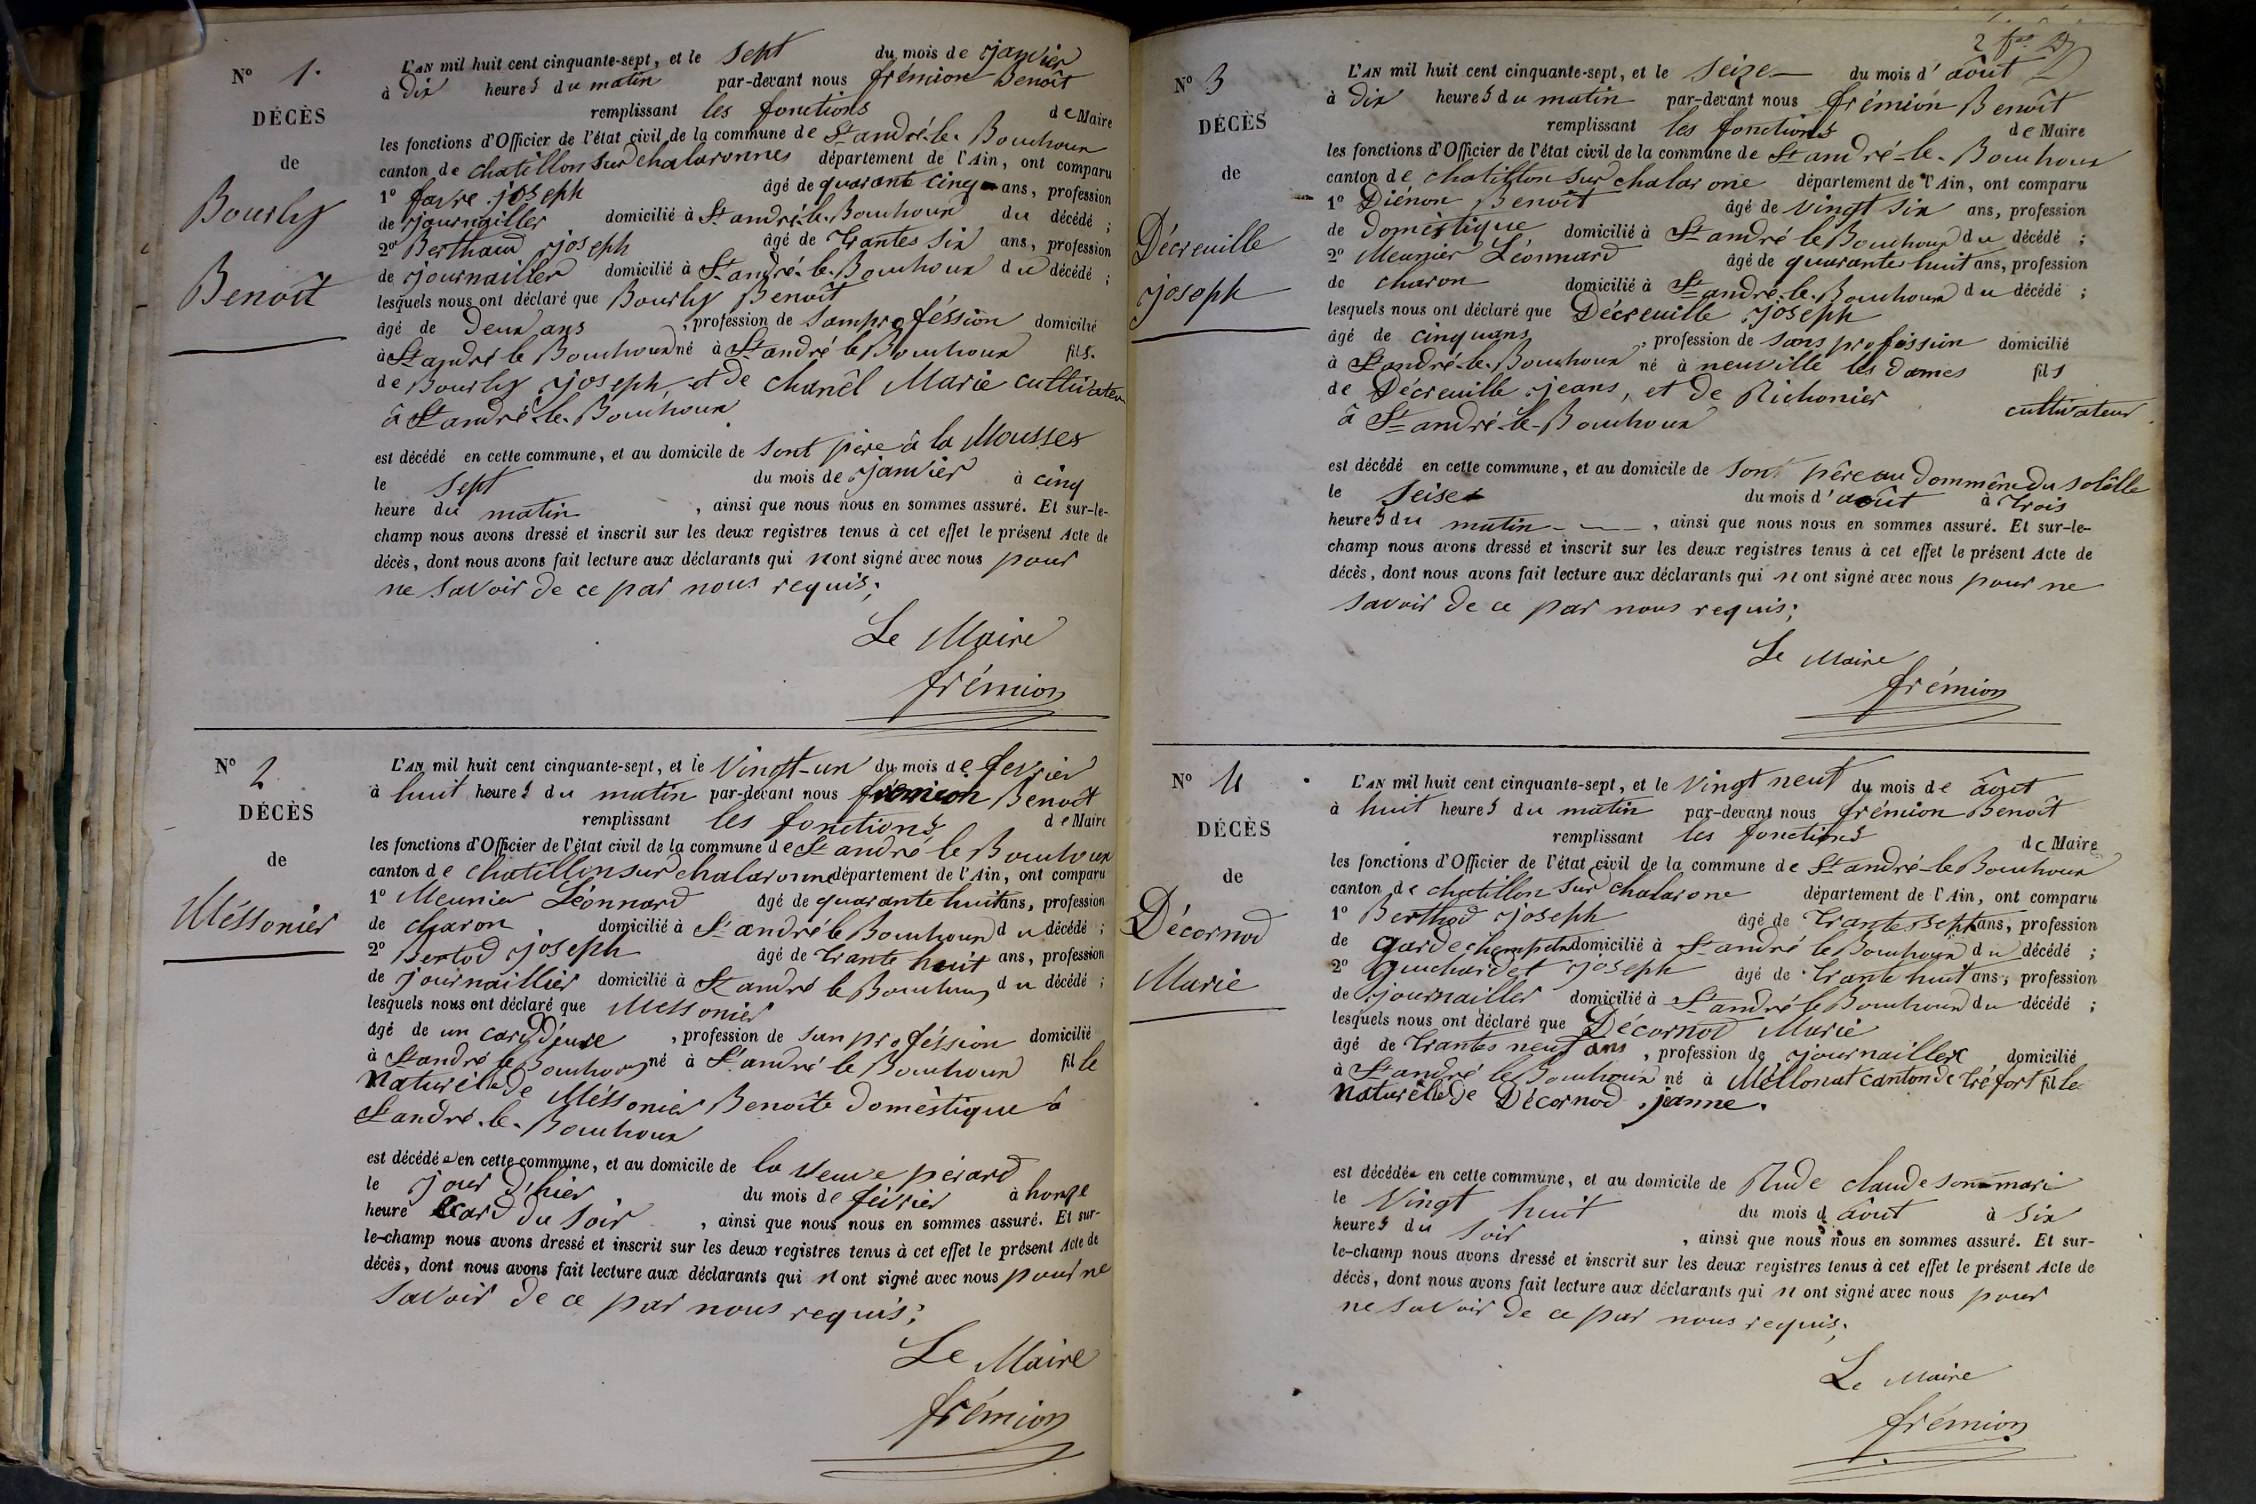 N° 1.
DÉCÈS
de
Bourly
Benoît
L'AN mil huit cent cinquante-sept, et le sept du mois de janvier
à dix heures du matin par-devant nous frémion Benoît
remplissant les fonctions de Maire
les fonctions d'Officier de l'état civil de la commune de St andré-le-Bouchoux
canton de chatillon sur chalaronnes département de l'Ain, ont comparu
1° favre joseph âgé de quarante cinq ans, profession
de journailler domicilié à St andré-le-Bouchoux du décédé ;
2° Berthaud joseph âgé de trantes six ans, profession
de journailler domicilié à St andré-le-Bouchoux du décédé ;
lesquels nous ont déclaré que Bourly Benoît
âgé de deux ans , profession de sans proféssion domicilié
à St andré le Bouchoux né à St andré le Bouchoux fils
de Bourly joseph et de chanêl Marie cultivateur
à St andré-le-Bouchoux
est décédé en cette commune, et au domicile de sont père à la Mousses
le sept du mois de janvier à cinq
heure du matin , ainsi que nous nous en sommes assuré. Et sur-le-
champ nous avons dressé et inscrit sur les deux registres tenus à cet effet le présent Acte de
décès, dont nous avons fait lecture aux déclarants qui nont signé avec nous pour
ne savoir de ce par nous requis;
Le Maire
frémion
N° 2
DÉCÈS
de
Méssonier
L'AN mil huit cent cinquante-sept, et le vingt-un du mois de fevrier
à huit heures du matin par-devant nous frémion Benoît
remplissant les fonctions de Maire
les fonctions d'Officier de l'état civil de la commune de St andré le Bouchoux
canton de chatillon sur chalaronne département de l'Ain, ont comparu
1° Meunier Léonnard âgé de quarante huit ans, profession
de charon domicilié à St andré le Bouchoux du décédé ;
2° Bertod joseph âgé de trante huit ans, profession
de journaillier domicilié à St andré le Bouchoux du décédé ;
lesquels nous ont déclaré que Messonier
âgé de un card d'eure , profession de san proféssion domicilié
à St andré le Bouchoux né à St andré le Bouchoux fille
naturêlle de Méssonier Benoîte domèstique à
St andré-le-Bouchoux
est décédée en cette commune, et au domicile de la veuve pérard
le jour d'hier du mois de février à honze
heure card du soir , ainsi que nous nous en sommes assuré. Et sur-
le-champ nous avons dressé et inscrit sur les deux registres tenus à cet effet le présent Acte de
décès, dont nous avons fait lecture aux déclarants qui nont signé avec nous pour ne
savoir de ce par nous requis;
Le Maire
frémion
N° 3
DÉCÈS
de
Décreuille
joseph
L'AN mil huit cent cinquante-sept, et le seize du mois d'août
à dix heures du matin par-devant nous frémion Benoît
remplissant les fonctions de Maire
les fonctions d'Officier de l'état civil de la commune de St andré-le-Bouchoux
canton de chatillon sur chalarone département de l'Ain, ont comparu
1° Diénon Benoît âgé de vingt six ans, profession
de domèstique domicilié à St andré le Bouchoux du décédé ;
2° Meunier Léonnard âgé de quarante huit ans, profession
de charon domicilié à St andré-le-Bouchoux du décédé ;
lesquels nous ont déclaré que Décreuille joseph
âgé de cinquans , profession de sans profession domicilié
à St andré-le-Bouchoux né à neuville les dames fils
de Décreuille jeans, et de Richonier cultivateur
à St andré-le-Bouchoux
est décédé en cette commune, et au domicile de sont pêre au dommêne du solêlle
le seise du mois d'août à trois
heures du matin , ainsi que nous nous en sommes assuré. Et sur-le-
champ nous avons dressé et inscrit sur les deux registres tenus à cet effet le présent Acte de
décès, dont nous avons fait lecture aux déclarants qui nont signé avec nous pour ne
savoir de ce par nous requis;
Le Maire
frémion
N° 4
DÉCÈS
de
Décornod
Marie
L'AN mil huit cent cinquante-sept, et le vingt neuf du mois de âout
à huit heures du matin par-devant nous frémion Benoît
remplissant les fonctions de Maire
les fonctions d'Officier de l'état civil de la commune de St andré-le Bouchoux
canton de chatillon sur chalarone département de l'Ain, ont comparu
1° Berthod joseph âgé de trantes sept ans, profession
de garde champetre domicilié à St andré le Bouchoux du décédé ;
2° Guichardet joseph âgé de trante huit ans, profession
de journailler domicilié à St andré le Bouchoux du décédé ;
lesquels nous ont déclaré que Décornod Marie
âgé de trantes neuf ans , profession de journaillere domicilié
à St andré le Bouchoux né à Méllonat canton de tréfort fille
naturêlle de Décornod jeanne.
est décédée en cette commune, et au domicile de Rude claude son mari
le vingt huit du mois d âout à six
heures du soir , ainsi que nous nous en sommes assuré. Et sur-
le-champ nous avons dressé et inscrit sur les deux registres tenus à cet effet le présent Acte de
décès, dont nous avons fait lecture aux déclarants qui nont signé avec nous pour
ne savoir de ce par nous requis;
Le Maire
frémion